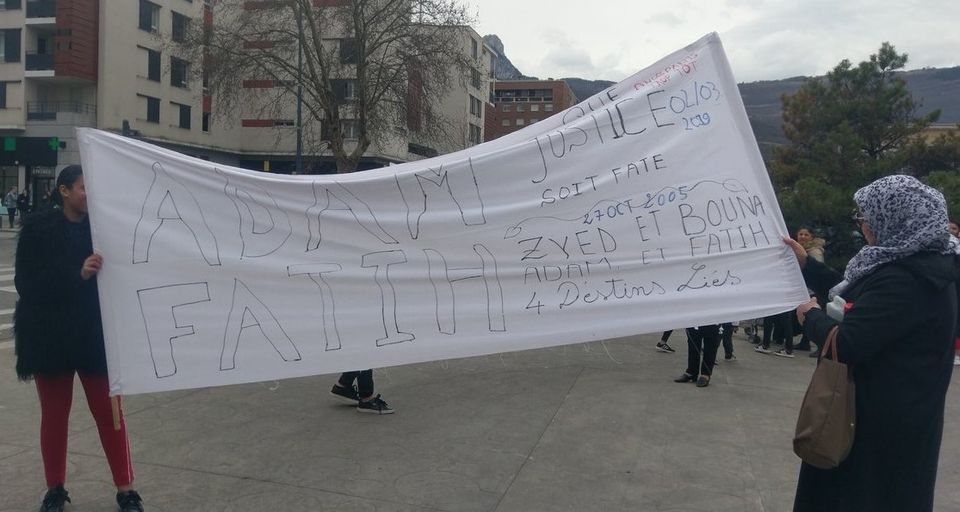 ADAM
FATIH
JUSTICE
SOIT FATE
02/03
2019
27 OCT 2005
ZYED ET BOUNA
ADAM ET FATIH
4 Déstins Liés